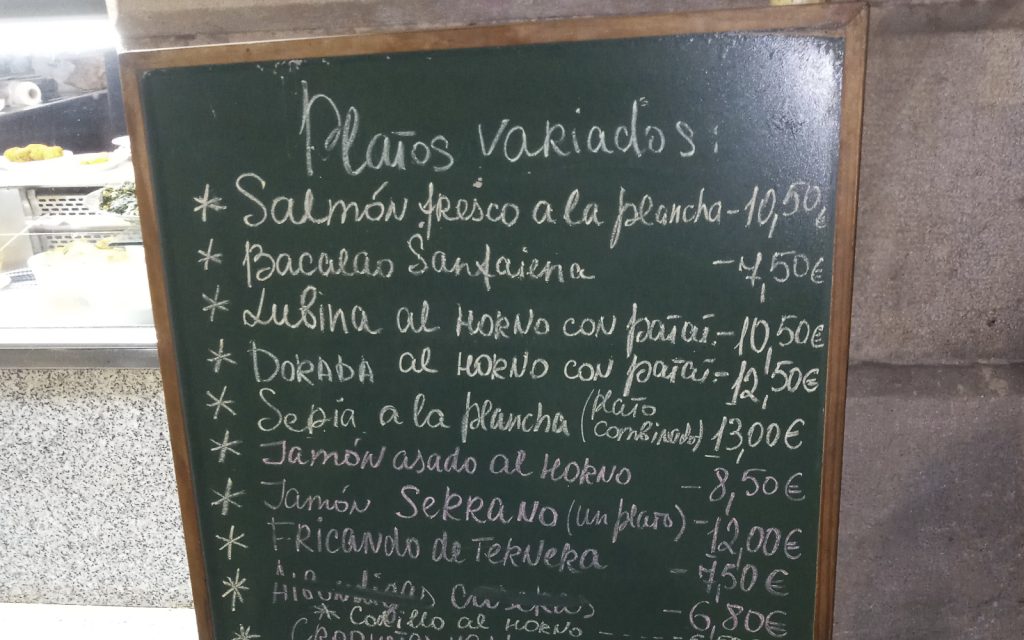 Platos variados:
* Salmón fresco a la plancha - 10,50€
* Bacalao Sanfaiena - 7,50€
* Lubina al HORNO con patat. - 10,50€
* DORADA al HORNO con patat. - 12,50€
* Sepia a la plancha (plato combinado) 13,00€
* Jamón asado al HORNO - 8,50€
* Jamón SERRANO (un plato) - 12,00€
* FRICANDO de TERNERA - 7,50€
* - 6,80€
* Codillo al HORNO
*